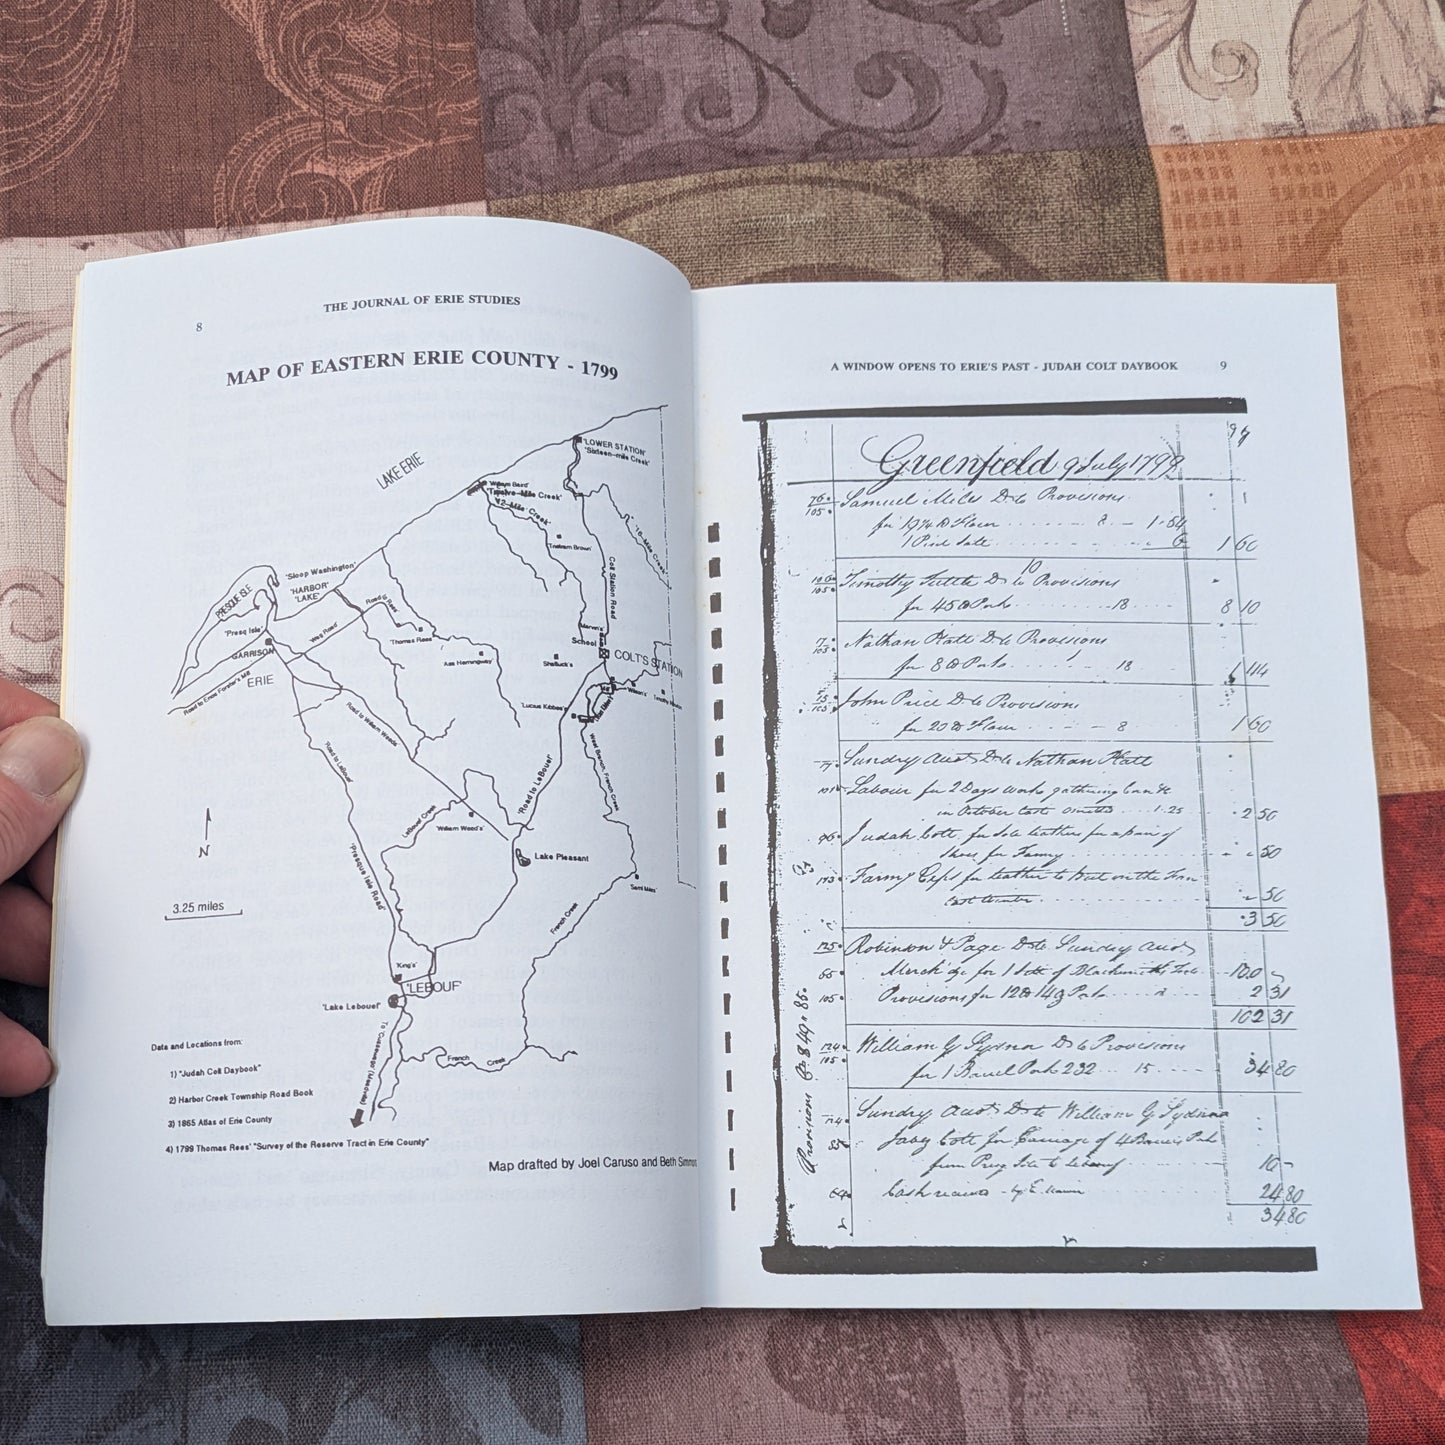 8
THE JOURNAL OF ERIE STUDIES
MAP OF EASTERN ERIE COUNTY - 1799
LAKE ERIE
'LOWER STATION'
'Sixteen-mile Creek'
'William Baird'
'Twelve-Mile Creek'
'12-Mile Creek'
'16-Mile Creek'
Colt Station Road
'Sloop Washington'
PRESQUE ISLE
'HARBOR'
'LAKE'
'Presq Isle'
GARRISON
ERIE
'Thomas Rees'
Asa Hemingway'
School
COLT'S STATION
Shattuck's
'Lucius Kibbee's'
Road to William Weeds'
'Road to LeBouef'
'Road to LeBouef'
West Branch, French Creek
LeBouef Creek
'William Weed's'
Lake Pleasant
N
3.25 miles
'Presque Isle Road'
French Creek
'King's'
'LEBOUF'
'Lake Lebouef'
French Creek
Data and Locations from:
1) "Judah Colt Daybook"
2) Harbor Creek Township Road Book
3) 1865 Atlas of Erie County
4) 1799 Thomas Rees' "Survey of the Reserve Tract in Erie County"
Map drafted by Joel Caruso and Beth
A WINDOW OPENS TO ERIE'S PAST - JUDAH COLT DAYBOOK 9
Greenfield 9 July 1799
Samuel Miles Dr to Provisions
1 60
Timothy Tuttle Dr to Provisions
for 45 lb Pork 18 8 10
Nathan Platt Dr to Provisions
for 8 lb Pork 18 1 44
John Price Dr to Provisions
for 20 lb Flour 8 1 60
Sundry Accts Dr to Nathan Platt
Labour for 2 Days work gathering Corn &c
in October last 1.25 2 50
Judah Colt for Sole leather for a pair of
Shoes for Fanny 50
Farm Exps for leather to
last Winter 50
3 50
Robinson & Page Dr to Sundry Accts
for 1 Sett of Blacksmiths Tools 100
Provisions for 12 lb 14 oz Pork 2 31
102 31
William G Dr to Provisions
for 1 Barrel Pork 232 15 34 80
Sundry Accts Dr to William G
Jabez Colt for Carriage of 4 Barrels Pork
from Presq Isle to Lebeouf 10
Cash received 24 80
34 80